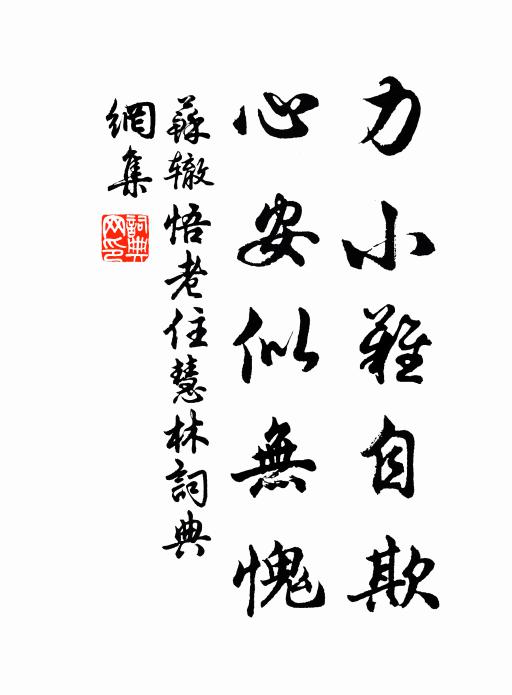 力小難自欺
心安似無愧
蘇辙悟老住慧林詞典
網集
詞典网印